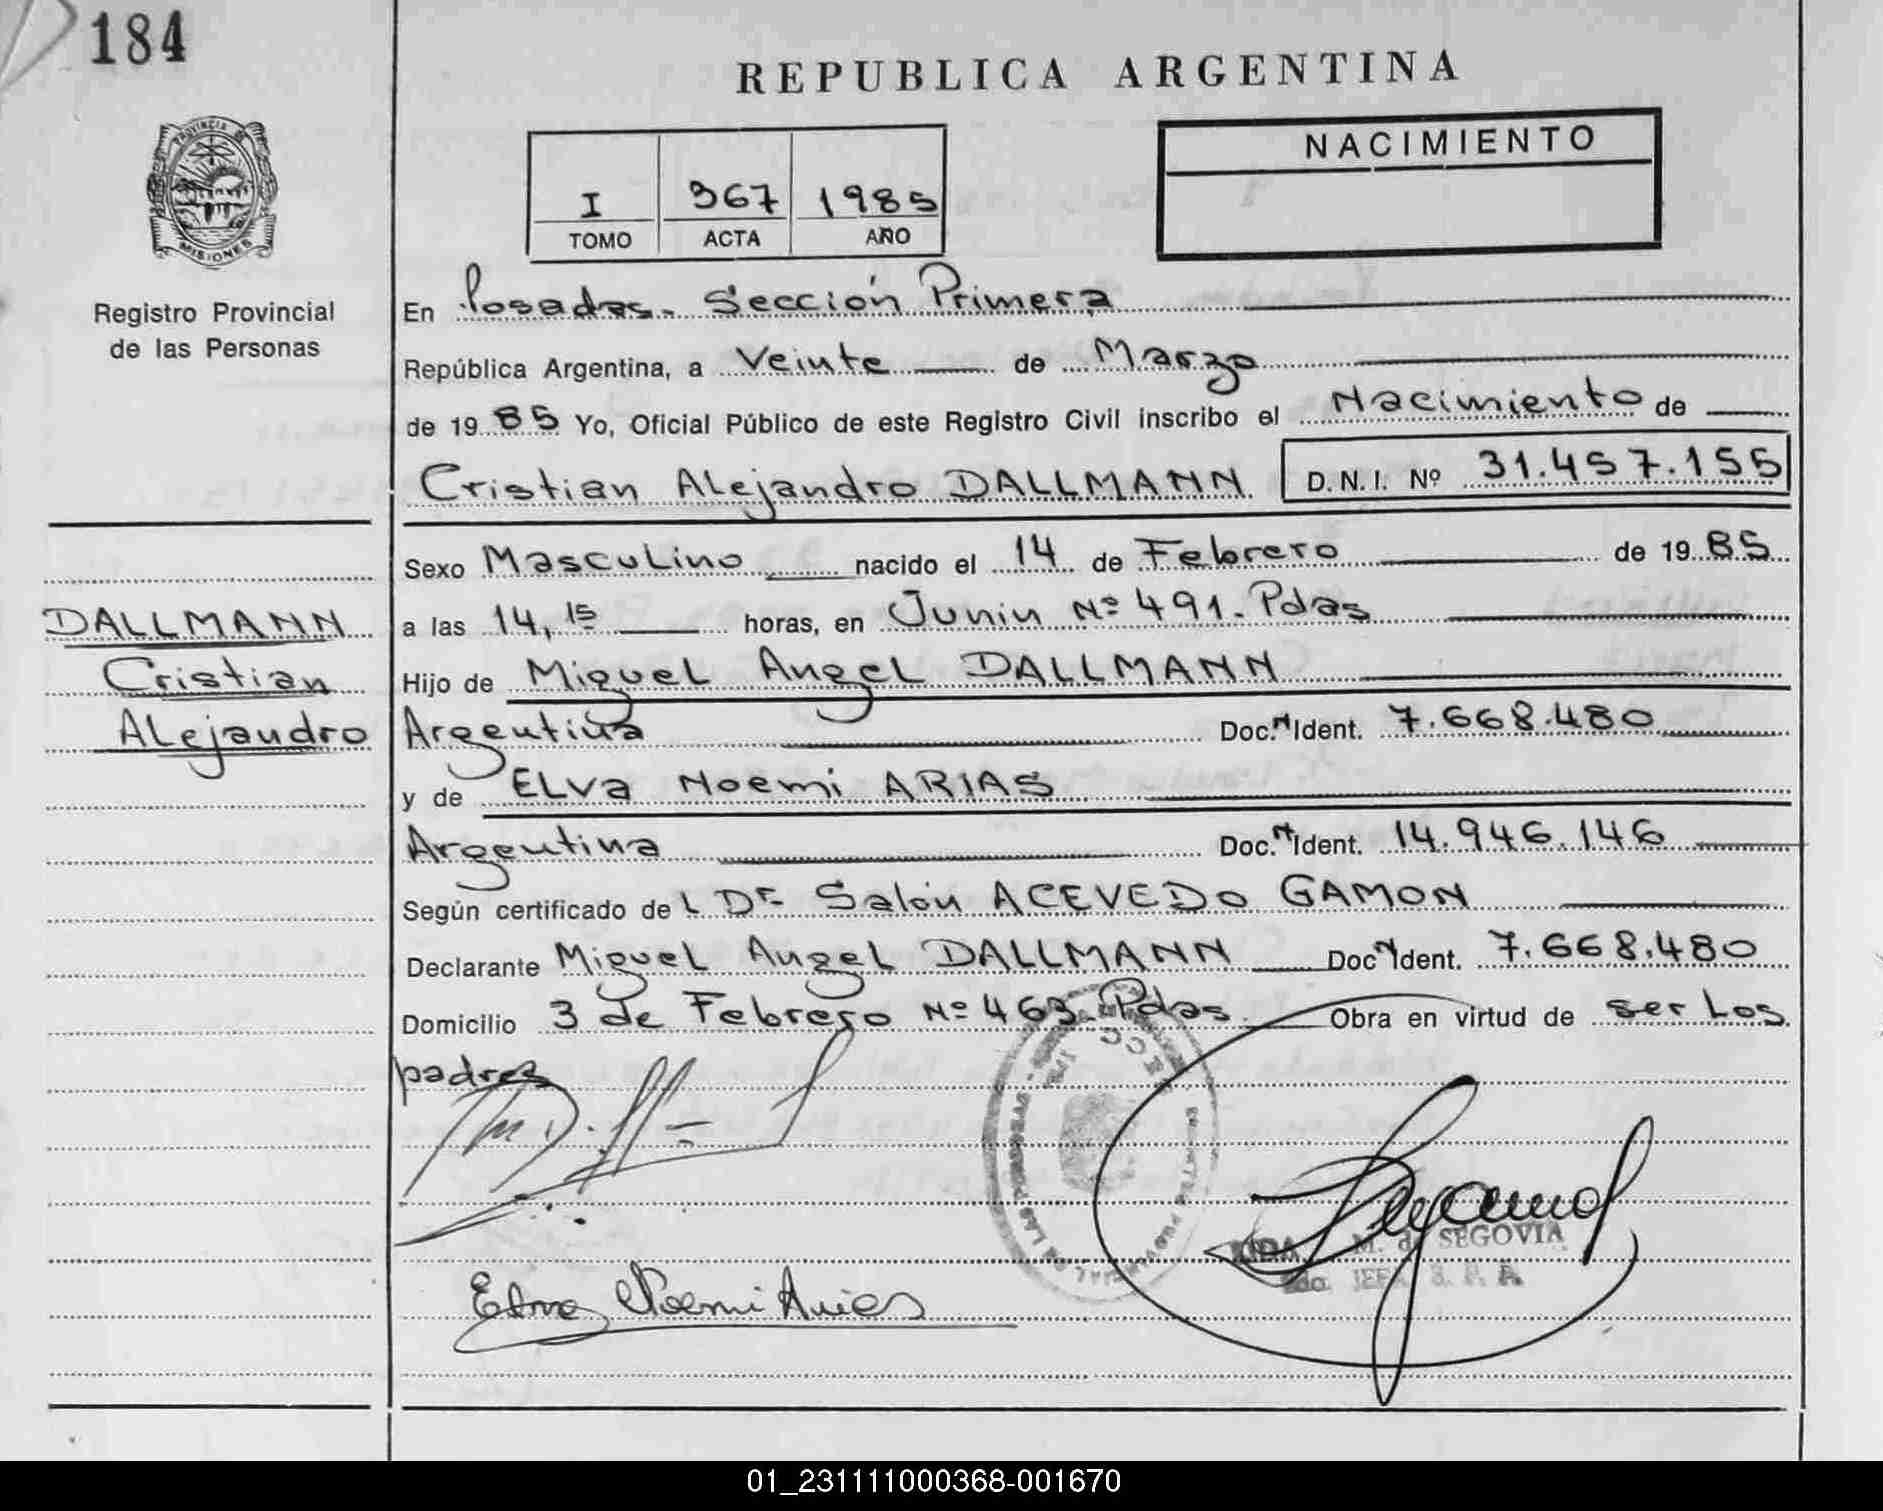 184
REPUBLICA ARGENTINA
PROVINCIA DE
MISIONES
Registro Provincial
de las Personas
I 367 1985
TOMO ACTA AÑO
NACIMIENTO
En Posadas. Sección Primera
República Argentina, a Veinte de Marzo
de 19 85 Yo, Oficial Público de este Registro Civil inscribo el Nacimiento de
Cristian Alejandro DALLMANN D.N.I. Nº 31.457.155
Sexo Masculino nacido el 14 de Febrero de 19 85
DALLMANN
Cristian
Alejandro
a las 14,15 horas, en Junin Nº 491. Pdas
Hijo de Miguel Angel DALLMANN
Argentina Doc. N Ident. 7.668.480
y de ELva Noemi ARIAS
Argentina Doc. N Ident. 14.946.146
Según certificado de L Dr. Salón ACEVEDO GAMON
Declarante Miguel Angel DALLMANN Doc N Ident. 7.668.480
Domicilio 3 de Febrero Nº 463 Pdas. Obra en virtud de ser Los
padres
M. de SEGOVIA
Elva Noemi Arias
01_231111000368-001670